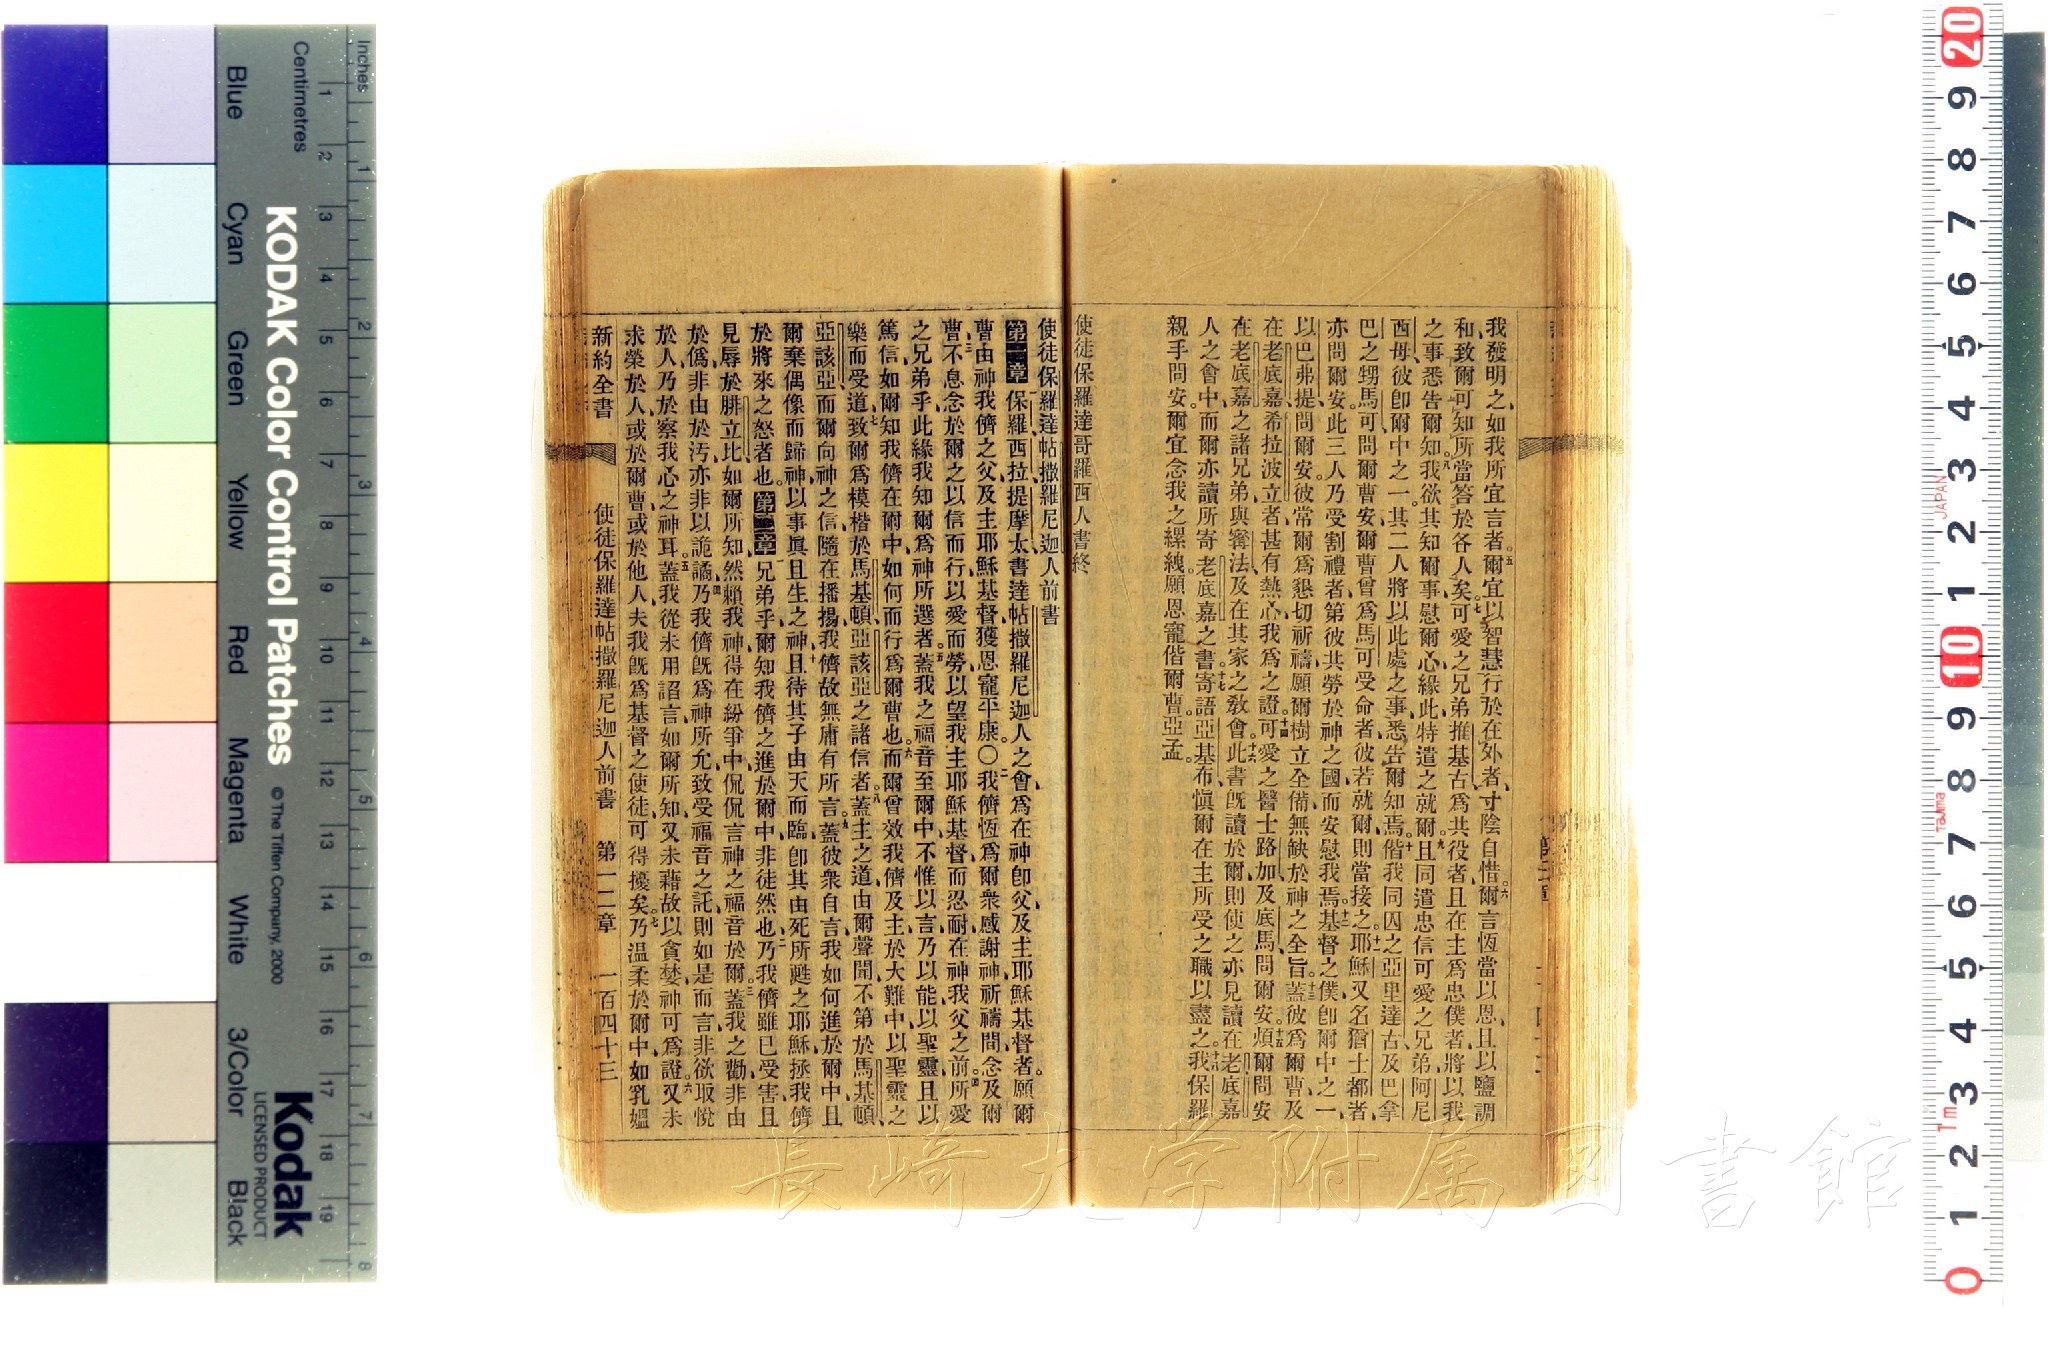 我發明之如我所宜言者爾宜以智慧行於在外者寸陰自惜爾言恆當以恩且以鹽調
和致爾可知所當答於各人矣可愛之兄弟推基古爲共役者且在主爲忠僕者將以我
之事悉告爾知我欲其知爾事慰爾心緣此特遣之就爾且同遣忠信可愛之兄弟阿尼
西母彼卽爾中之一其二人將以此處之事悉告爾知焉偕我同囚之亞里達古及巴拿
巴之甥馬可問爾曹安爾曹曾爲馬可受命者彼若就爾則當接之耶穌又名猶士都者
亦問爾安此三人乃受割禮者第彼共勞於神之國而安慰我焉基督之僕卽爾中之一
以巴弗提問爾安彼常爾爲懇切祈禱願爾樹立全備無缺於神之全旨蓋彼爲爾曹及
在老底嘉希拉波立者甚有熱心我爲之證可愛之醫士路加及底馬問爾安煩爾問安
在老底嘉之諸兄弟與寗法及在其家之敎會此書旣讀於爾則使之亦見讀在老底嘉
人之會中而爾亦讀所寄老底嘉之書寄語亞基布愼爾在主所受之職以盡之我保羅
親手問安爾宜念我之縲絏願恩寵偕爾曹亞孟
使徒保羅達哥羅西人書終
使徒保羅達帖撒羅尼迦人前書
第一章 保羅西拉提摩太書達帖撒羅尼迦人之會爲在神卽父及主耶穌基督者願爾
曹由神我儕之父及主耶穌基督獲恩寵平康〇我儕恆爲爾衆感謝神祈禱間念及爾
曹不息念於爾之以信而行以愛而勞以望我主耶穌基督而忍耐在神我父之前所愛
之兄弟乎此緣我知爾爲神所選者蓋我之福音至爾中不惟以言乃以能以聖靈且以
篤信如爾知我儕在爾中如何而行爲爾曹也而爾曾效我儕及主於大難中以聖靈之
樂而受道致爾爲模楷於馬基頓亞該亞之諸信者蓋主之道由爾聲聞不第於馬基頓
亞該亞而爾向神之信隨在播揚我儕故無庸有所言蓋彼衆自言我如何進於爾中且
爾棄偶像而歸神以事眞且生之神且待其子由天而臨卽其由死所甦之耶穌拯我儕
於將來之怒者也 第二章 兄弟乎爾知我儕之進於爾中非徒然也乃我儕雖已受害且
見辱於腓立比如爾所知然賴我神得在紛爭中侃侃言神之福音於爾蓋我之勸非由
於僞非由於汚亦非以詭譎乃我儕旣爲神所允致受福音之託則如是而言非欲取悅
於人乃於察我心之神耳蓋我從未用諂言如爾所知又未藉故以貪婪神可爲證又未
求榮於人或於爾曹或於他人夫我旣爲基督之使徒可得擾矣乃温柔於爾中如乳媼
新約全書 使徒保羅達帖撒羅尼迦人前書 第一二章 一百四十三
Inches
Centimetres
Blue
Cyan
Green
Yellow
Red
Magenta
White
3/Color
Black
KODAK Color Control Patches © The Tiffen Company, 2000
Kodak
LICENSED PRODUCT
JAPAN
Tajima
長崎大学附属図書館